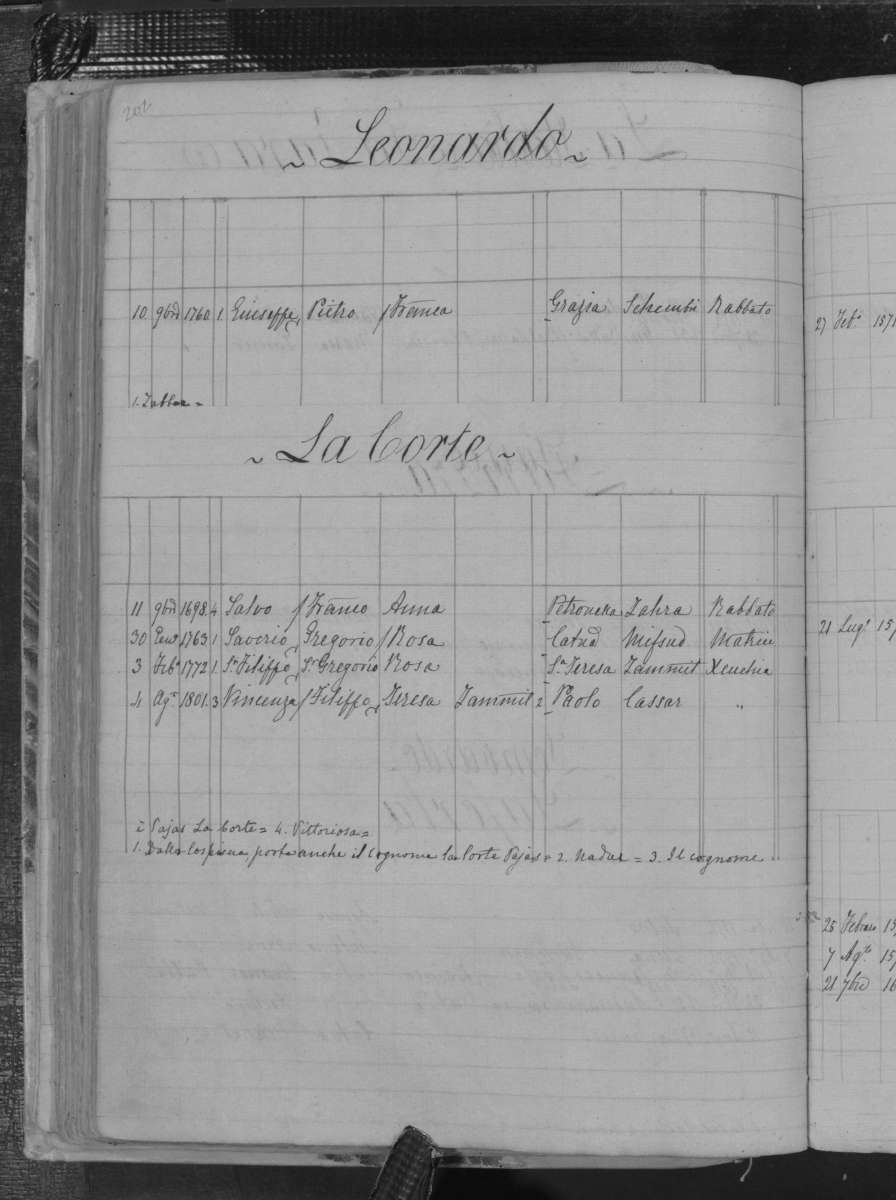 202
~ Leonardo ~
10 9bre 1760 1. Giuseppe Pietro f Franca Grazia Schembri Rabbato
1. Zabbar =
~ La Corte ~
11 9bre 1698. 4 Salvo f Franco Anna Petronella Zahra Rabbato
30 1763 1 Saverio Gregorio f Rosa Catna Mifsud Matrice
3 Feb. 1772 1. Sr. Filippo Sr. Gregorio Rosa Sa. Teresa Zammit Xeuchia
4 Ago. 1801. 3 Vincenza f Filippo Teresa Zammit 2 Paolo Cassar "
è Pajas La Corte = 4. Vittoriosa =
1. Dalla Cospicua, porta anche il Cognome La Corte Pajas = 2. Nadur = 3. Il cognome
27 Feb. 157
21 Lug. 15
25 Febraro 15
7 Ago. 15
21 7bre 16